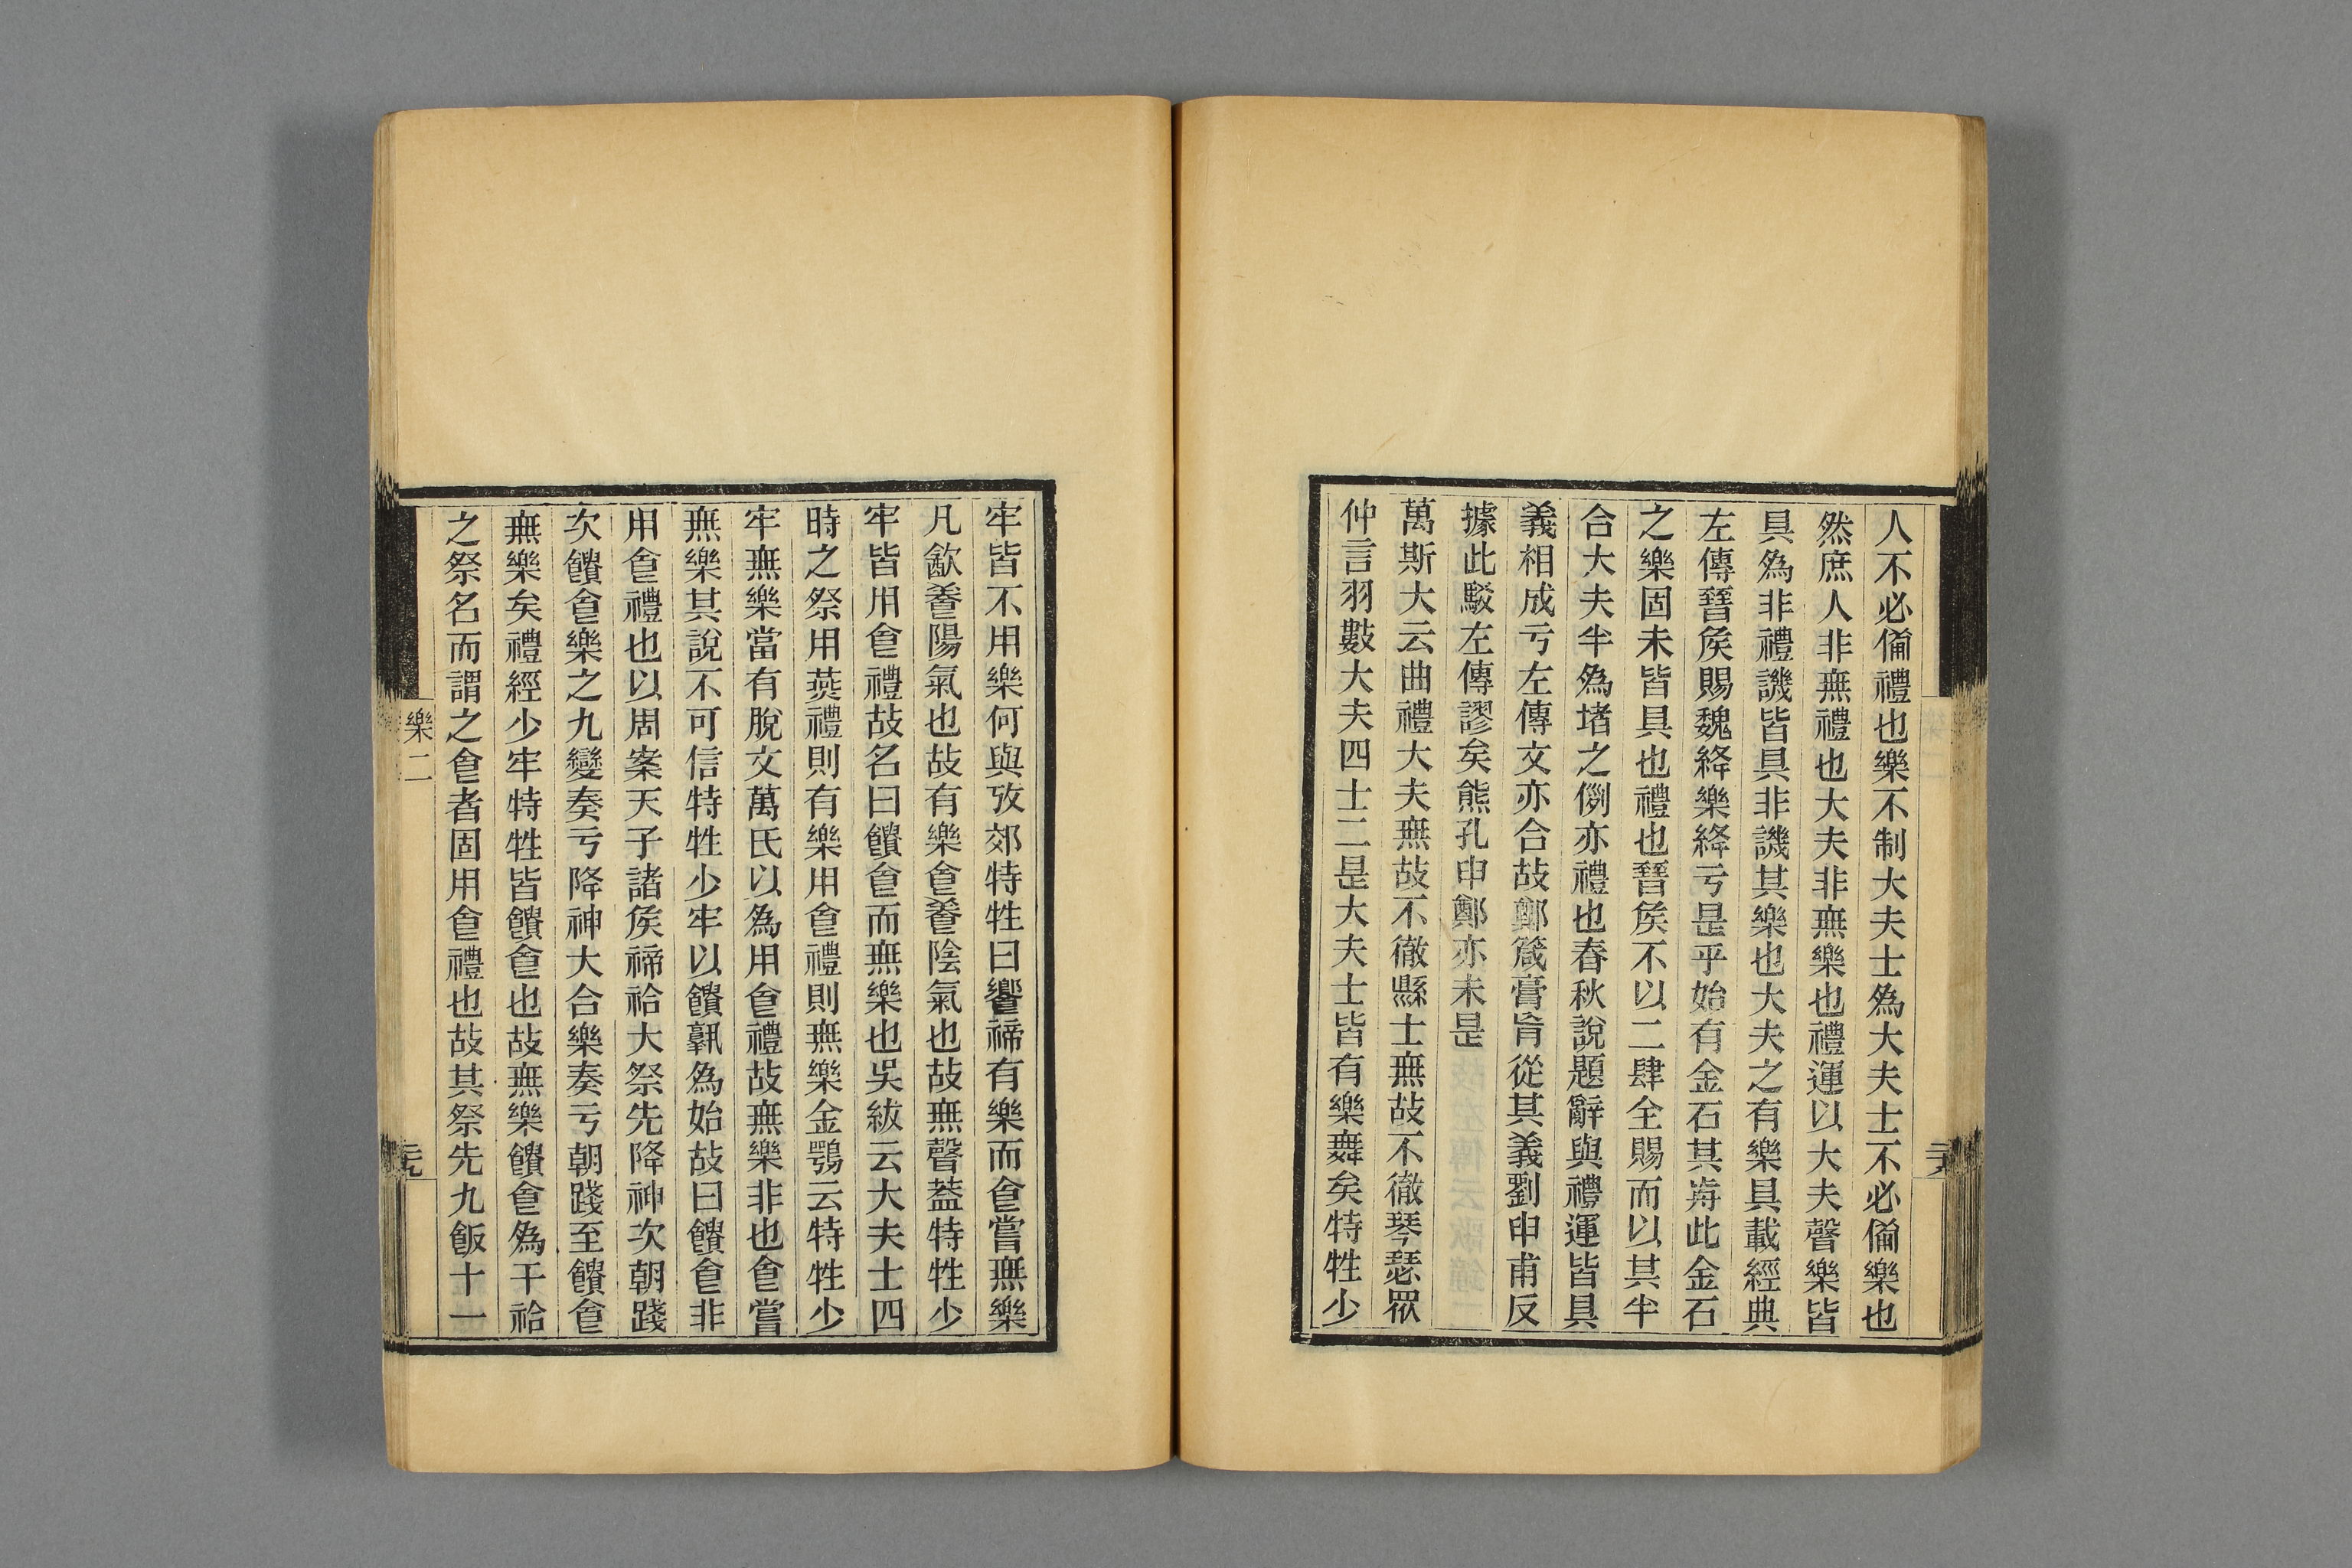 人不必僃禮也樂不制大夫士爲大夫士不必僃樂也
然庶人非無禮也大夫非無樂也禮運以大夫聲樂皆
具爲非禮譏皆具非譏其樂也大夫之有樂具載經典
左傳晉矦賜魏絳樂絳亏是乎始有金石其歬此金石
之樂固未皆具也禮也晉矦不以二肆全賜而以其半
合大夫半爲堵之例亦禮也春秋說題辭與禮運皆具
義相成亏左傳文亦合故鄭箴膏肓從其義劉申甫反
據此駁左傳謬矣熊孔申鄭亦未是
萬斯大云曲禮大夫無故不徹縣士無故不徹琴瑟眾
仲言羽數大夫四士二是大夫士皆有樂舞矣特牲少
樂二
牢皆不用樂何與攷郊特牲曰饗禘有樂而食嘗無樂
凡歙養陽氣也故有樂食養陰氣也故無聲蓋特牲少
牢皆用食禮故名曰饋食而無樂也吳紱云大夫士四
時之祭用燕禮則有樂用食禮則無樂金鶚云特牲少
牢無樂當有脫文萬氏以爲用食禮故無樂非也食嘗
無樂其說不可信特牲少牢以饋孰爲始故曰饋食非
用食禮也以周案天子諸矦禘祫大祭先降神次朝踐
次饋食樂之九變奏亏降神大合樂奏亏朝踐至饋食
無樂矣禮經少牢特牲皆饋食也故無樂饋食爲干祫
之祭名而謂之食者固用食禮也故其祭先九飯十一